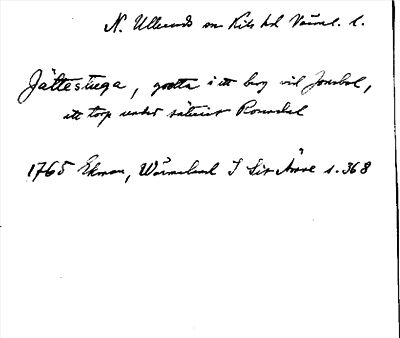 N. Ullerud sn Kils hd Värml. l.
Jättestuga, grotta i ett berg vid Jonsbol,
ett torp under säteriet Romsdal
1765 Ekman, Wärmeland I s. 368